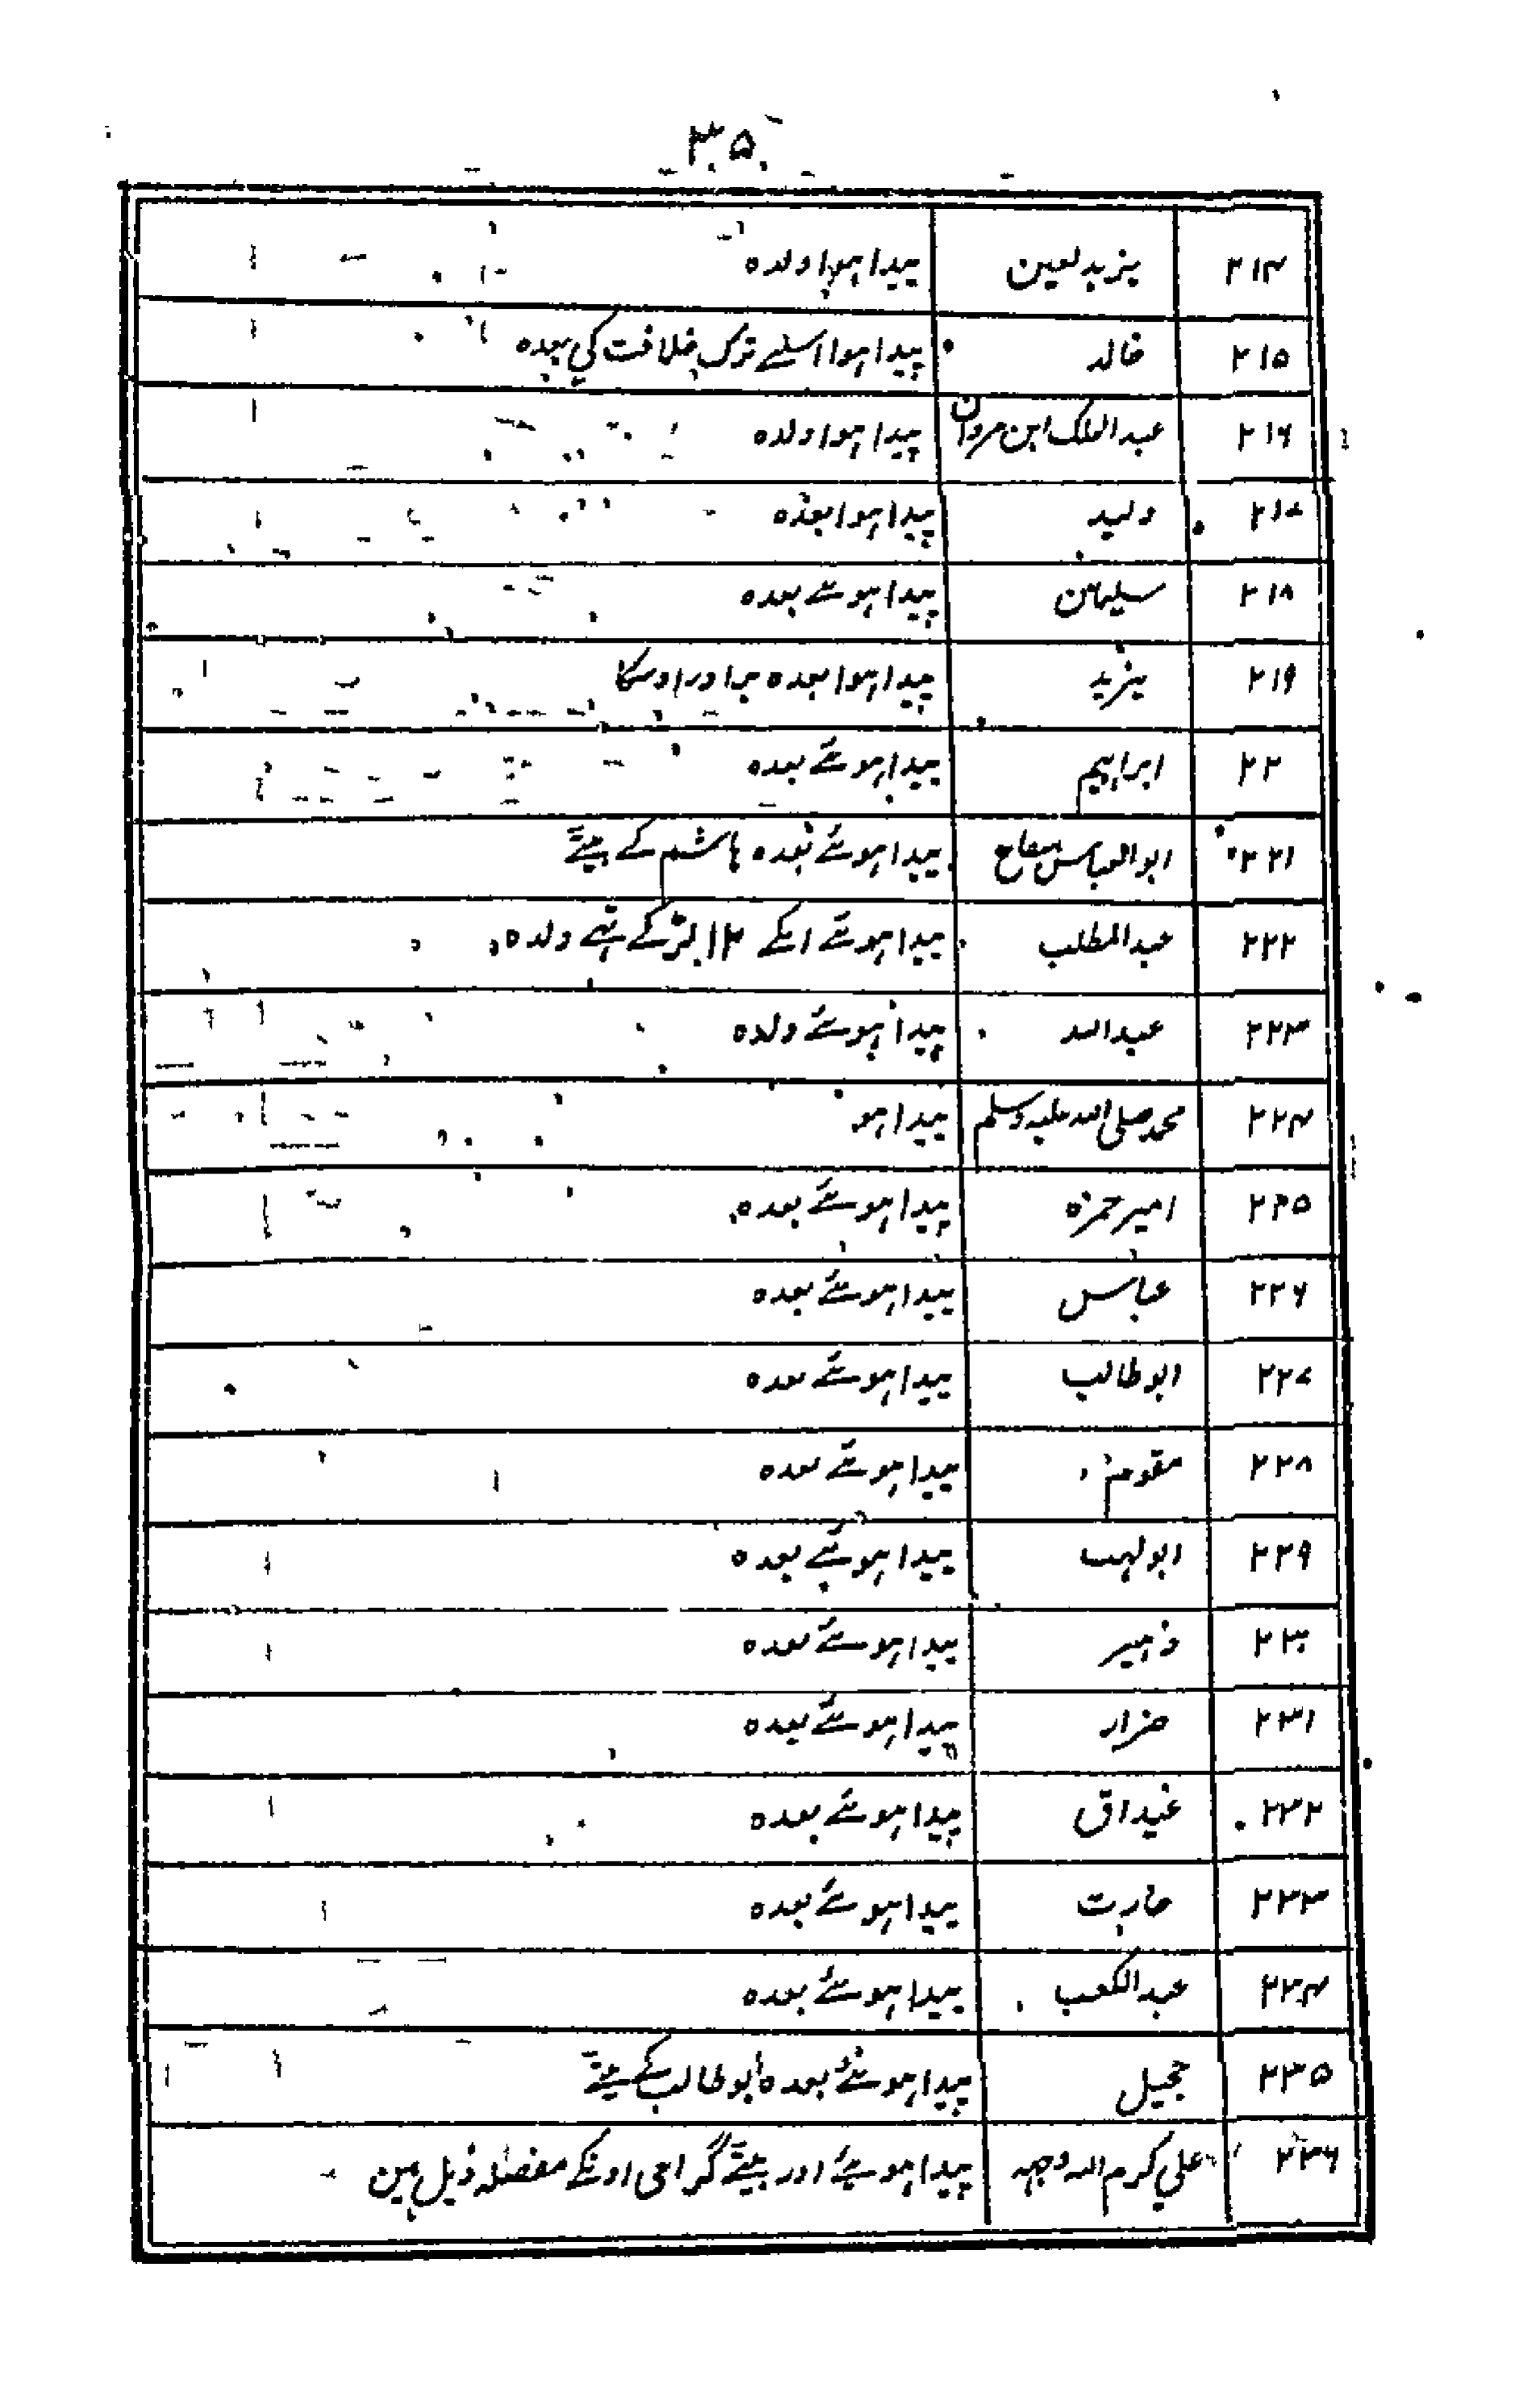 ۳۵
۲۱۴ یزید لعین پیدا ہوا ولدہ
۲۱۵ خالد پیدا ہوا اسلے ترک خلافت کی بعدہ
۲۱۶ عبدالملک ابن مروان پیدا ہوا ولدہ
۲۱۷ ولید پیدا ہوا بعدہ
۲۱۸ سلیمان پیدا ہوئے بعدہ
۲۱۹ یزید پیدا ہوا بعدہ برادر اوسکا
۲۲ ابراہیم پیدا ہوئے بعدہ
۲۲۱ ابو العباس سفاح پیدا ہوئے بعدہ ہاشم کے بیٹے
۲۲۲ عبدالمطلب پیدا ہوئے انکے ۱۲ لڑکے تہے ولدہ
۲۲۳ عبداللہ پیدا ہوئے ولدہ
۲۲۴ محمد صلی اللہ علیہ وسلم پیدا ہو
۲۲۵ امیر حمزہ پیدا ہوئے بعدہ
۲۲۶ عباس پیدا ہوئے بعدہ
۲۲۷ ابو طالب پیدا ہوئے بعدہ
۲۲۸ مقوم پیدا ہوئے بعدہ
۲۲۹ ابو لہب پیدا ہوئے بعدہ
۲۳۰ پیدا ہوئے بعدہ
۲۳۱ ضرار پیدا ہوئے بعدہ
۲۳۲ غیداق پیدا ہوئے بعدہ
۲۳۳ حارث پیدا ہوئے بعدہ
۲۳۴ عبدالکعب پیدا ہوئے بعدہ
۲۳۵ حجیل پیدا ہوئے بعدہ ابو طالب کے بیٹے
۲۳۶ علی کرم اللہ وجہہ پیدا ہوئے اور بیٹے گرامی اونکے مفصلہ ذیل ہین